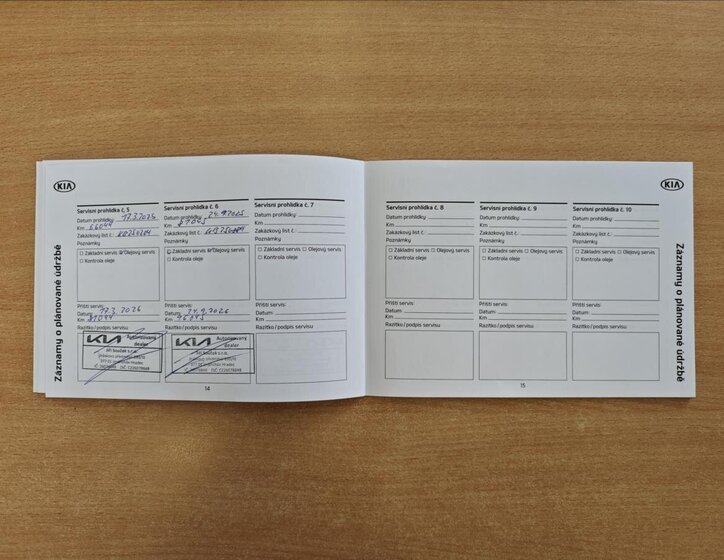 KIA
Záznamy o plánované údržbě
Servisní prohlídka č. 5
Datum prohlídky: 17.3.2025
Km 66044
Zakázkový list č.:
Poznámky
Základní servis Olejový servis
Kontrola oleje
Příští servis:
Datum 17.3.2026
Km 81044
Razítko/podpis servisu
KIA Autorizovaný
dealer
Jiří Souček s.r.o.
Servisní prohlídka č. 6
Datum prohlídky: 24.9.2025
Km 81045
Zakázkový list č.:
Poznámky
Základní servis Olejový servis
Kontrola oleje
Příští servis:
Datum 24.9.2026
Km 96045
Razítko/podpis servisu
KIA Autorizovaný
dealer
Jiří Souček s.r.o.
Servisní prohlídka č. 7
Datum prohlídky:
Km
Zakázkový list č.:
Poznámky
Základní servis Olejový servis
Kontrola oleje
Příští servis:
Datum
Km
Razítko/podpis servisu
14
KIA
Servisní prohlídka č. 8
Datum prohlídky:
Km
Zakázkový list č.:
Poznámky
Základní servis Olejový servis
Kontrola oleje
Příští servis:
Datum
Km
Razítko/podpis servisu
Servisní prohlídka č. 9
Datum prohlídky:
Km
Zakázkový list č.:
Poznámky
Základní servis Olejový servis
Kontrola oleje
Příští servis:
Datum
Km
Razítko/podpis servisu
Servisní prohlídka č. 10
Datum prohlídky:
Km
Zakázkový list č.:
Poznámky
Základní servis Olejový servis
Kontrola oleje
Příští servis:
Datum
Km
Razítko/podpis servisu
15
Záznamy o plánované údržbě